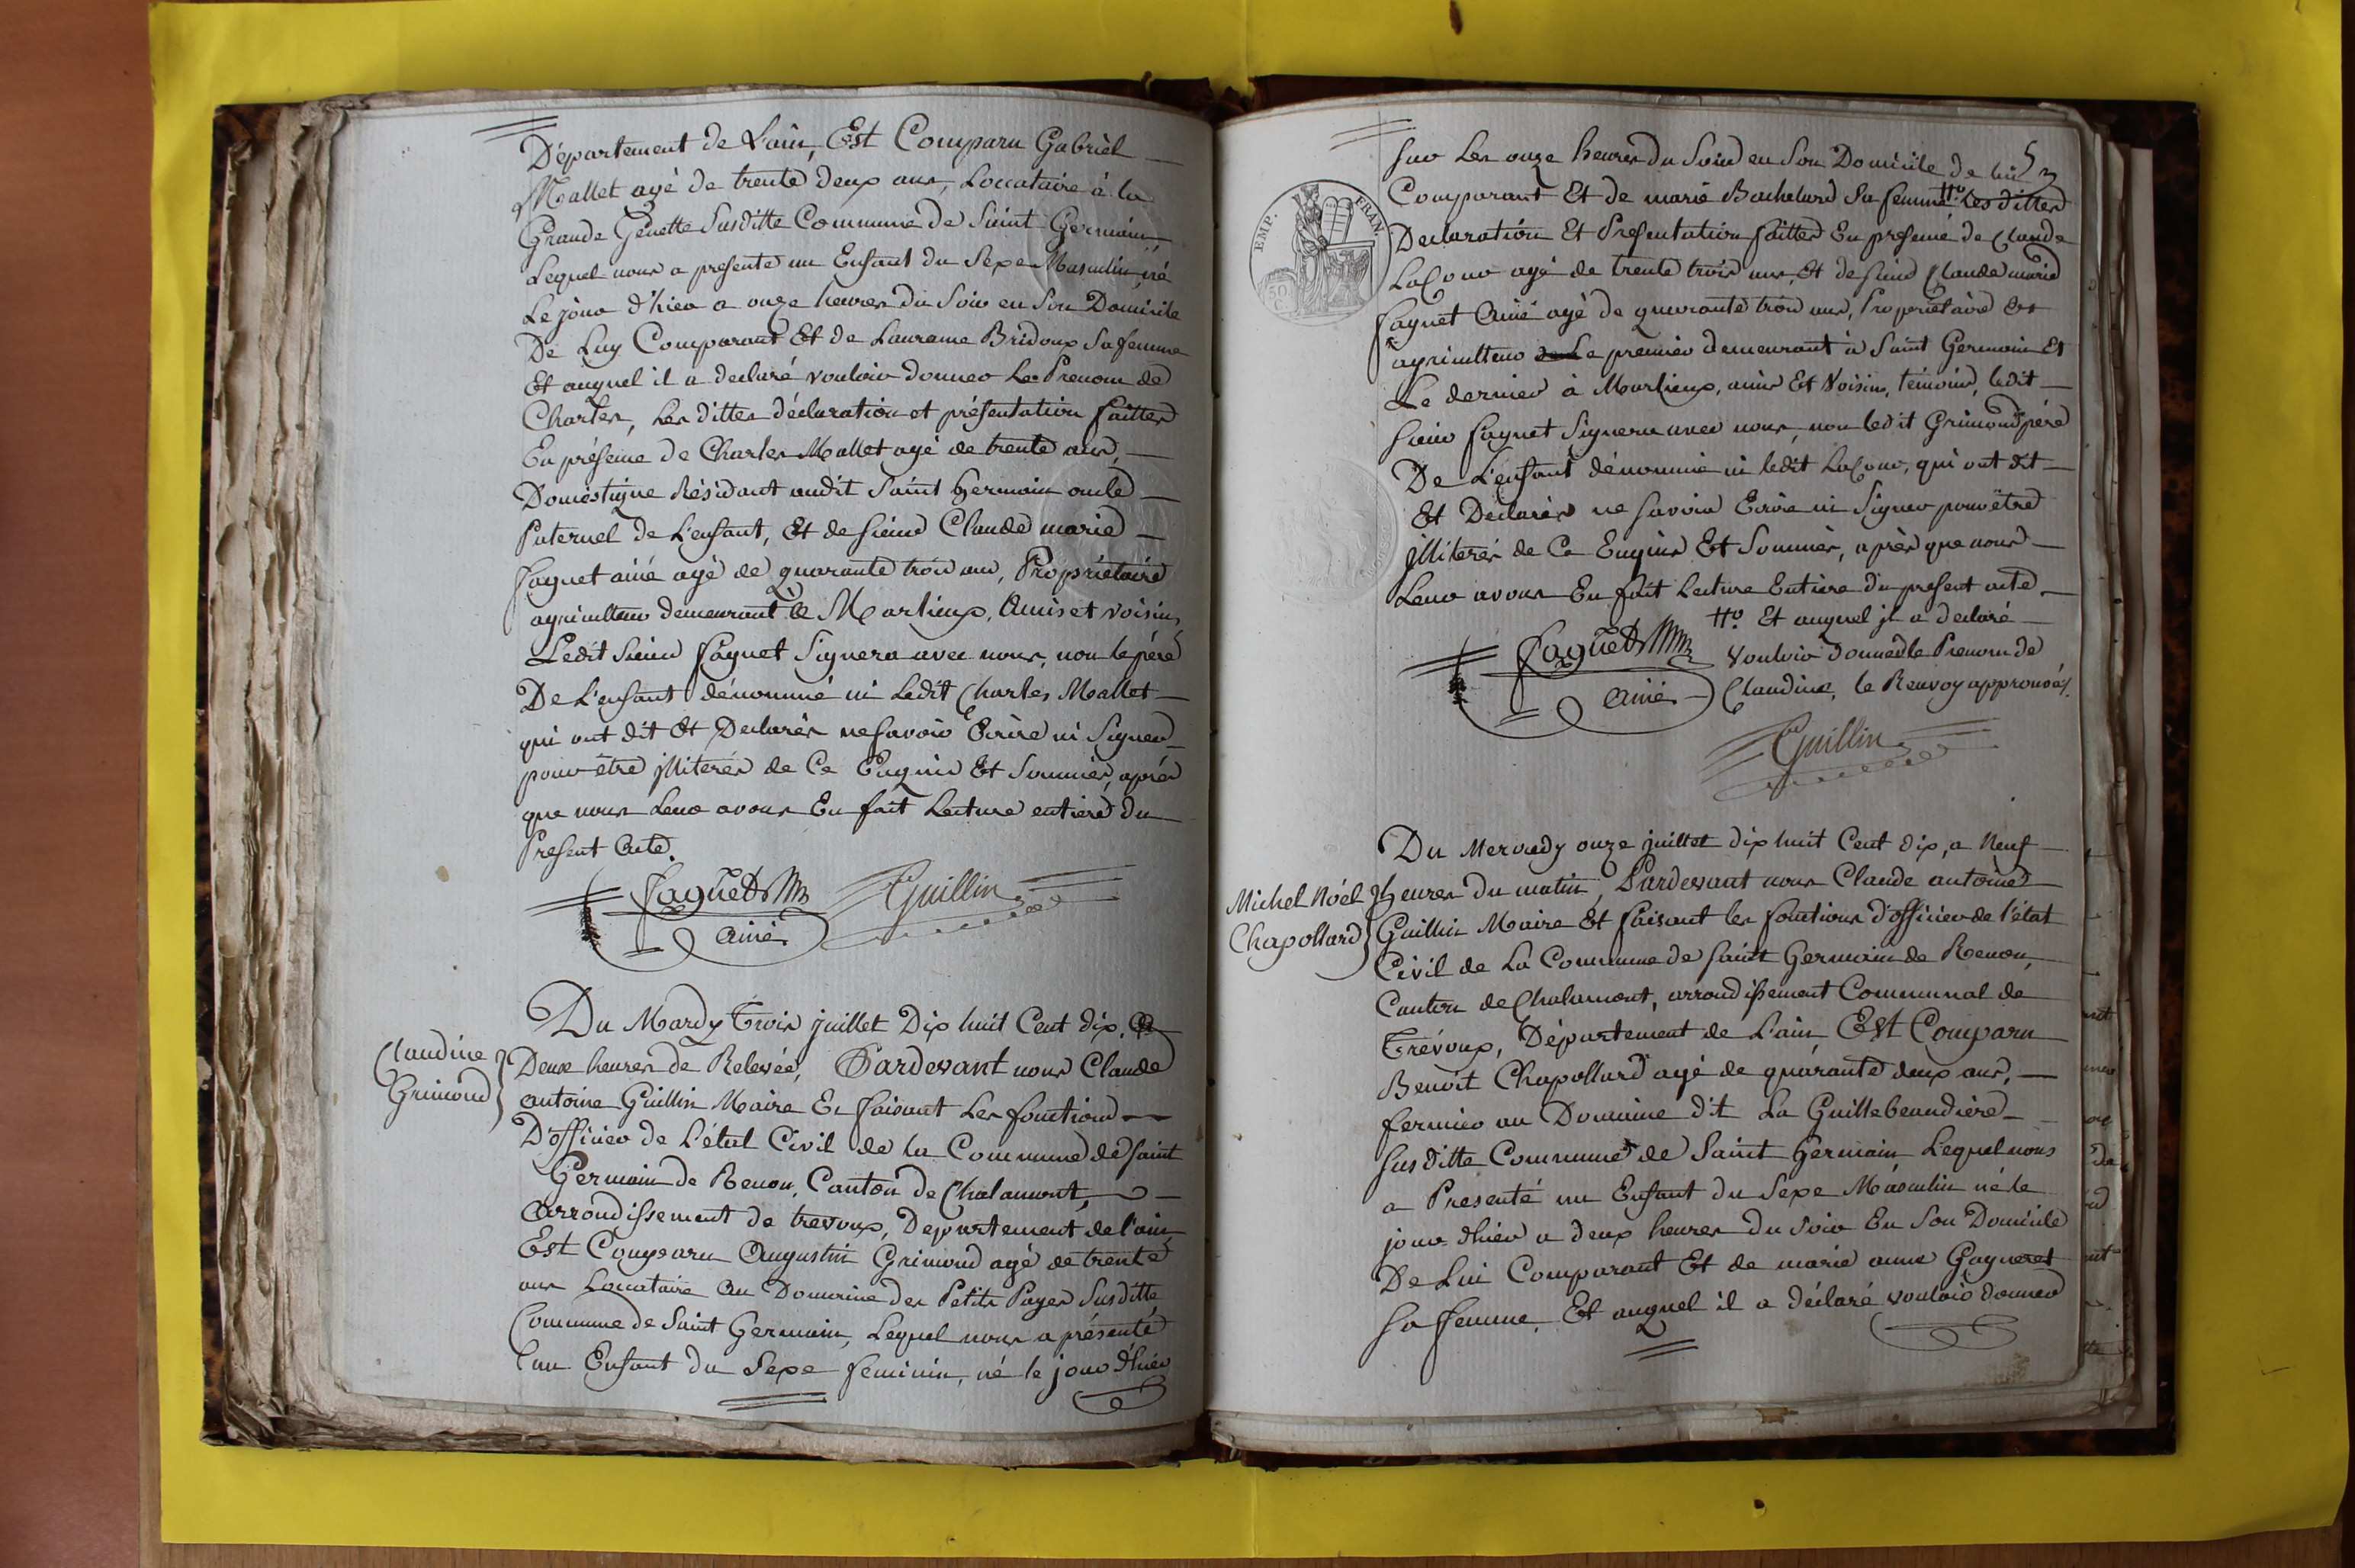 Département de L'ain, Est Comparu Gabriel
Mallet agé de trente deux ans, Loccataire à la
Grande Genette Susditte Commune de Saint Germain,
Lequel nous a presenté un Enfant du Sexe Masculin, né
Le jour d'hier a onze heures du Soir en Son Domicile
De Luy Comparant Et de Laurence Bridoux Sa femme
Et auquel il a declaré vouloir donner Les Prenom de
Charles, Les dittes déclaration et présentation faittes
En présence de Charles Mallet agé de trente ans,
Domestique Résidant audit Saint Germain oncle
Paternel de L'enfant, Et de Sieur Claude marie
faguet ainé agé de quarante trois ans, Propriétaire
agriculteur demeurant à Marlieux, Amis et voisins,
Ledit Sieur faguet Signera avec nous, non le père
De L'enfant dénommé ni Ledit Charles Mallet
qui ont dit Et Declarés ne Savoir Ecrire ni Signer
pour être jlliterés de Ce Enquis Et Sommés, après
que nous Leur avons En fait Lecture entiere du
Present Acte.
Faguet
Guillin
Ainé
Claudine
Grimond
Du Mardy Trois juillet Dix huit Cent dix, a
Deux heures de Relevée, Pardevant nous Claude
antoine Guillin Maire Et faisant Les fonctions
D'officier de L'état Civil de la Commune de Saint
Germain de Renon, Canton de Chalamont,
Arrondissement de trevoux, Departement de l'ain
Est Comparu Augustin Grimond agé de trente
ans Locataire Au Domaine des Petits Payes Susditte
Commune de Saint Germain, Lequel nous a présenté
un Enfant du Sexe feminin, né le jour d'hier
53
Sur Les onze heures du Soir en Son Domicile de lui
Comparant Et de marie Bachelard Sa femme Les dittes
EMP. FRAN.
50 C
Declaration Et Presentation faittes En presence de Claude
agé de trente trois ans, Et de Sieur Claude marie
faguet Ainé agé de quarante trois ans, Propriétaire Et
agriculteur Le premier demeurant à Saint Germain Et
Le dernier à Marlieux, amis Et Voisins, témoins, ledit
Sieur faguet Signera avec nous, non ledit Grimond père
De L'enfant dénommé ni ledit qui ont dit
Et Declarés ne Savoir Ecrire ni Signer pour être
jlliterés de Ce Enquis Et Sommés, après que nous
Leur avons En fait Lecture Entiere du present acte.
Et auquel jl a declaré
Faguet
vouloir donner le Prenom de
Ainé
Claudine, le Renvoy approuvé
Guillin
Du Mercredy onze juillet dix huit Cent dix, a Neuf
Michel Nöel
Chapollard
heures du matin, Pardevant nous Claude antoine
Guillin Maire Et faisant les fonctions d'officier de l'état
Civil de La Commune de Saint Germain de Renon,
Canton de Chalamont, arrondissement Communal de
Trévoux, Département de L'ain, Est Comparu
Benoit Chapollard agé de quarante deux ans,
fermier au Domaine dit La Guillebeaudière
Susditte Commune de Saint Germain Lequel nous
a Presenté un Enfant du Sexe Masculin né le
jour d'hier a deux heures du Soir En Son Domicile
De Lui Comparant Et de marie anne Gagneret
Sa femme, Et auquel il a déclaré vouloir donner